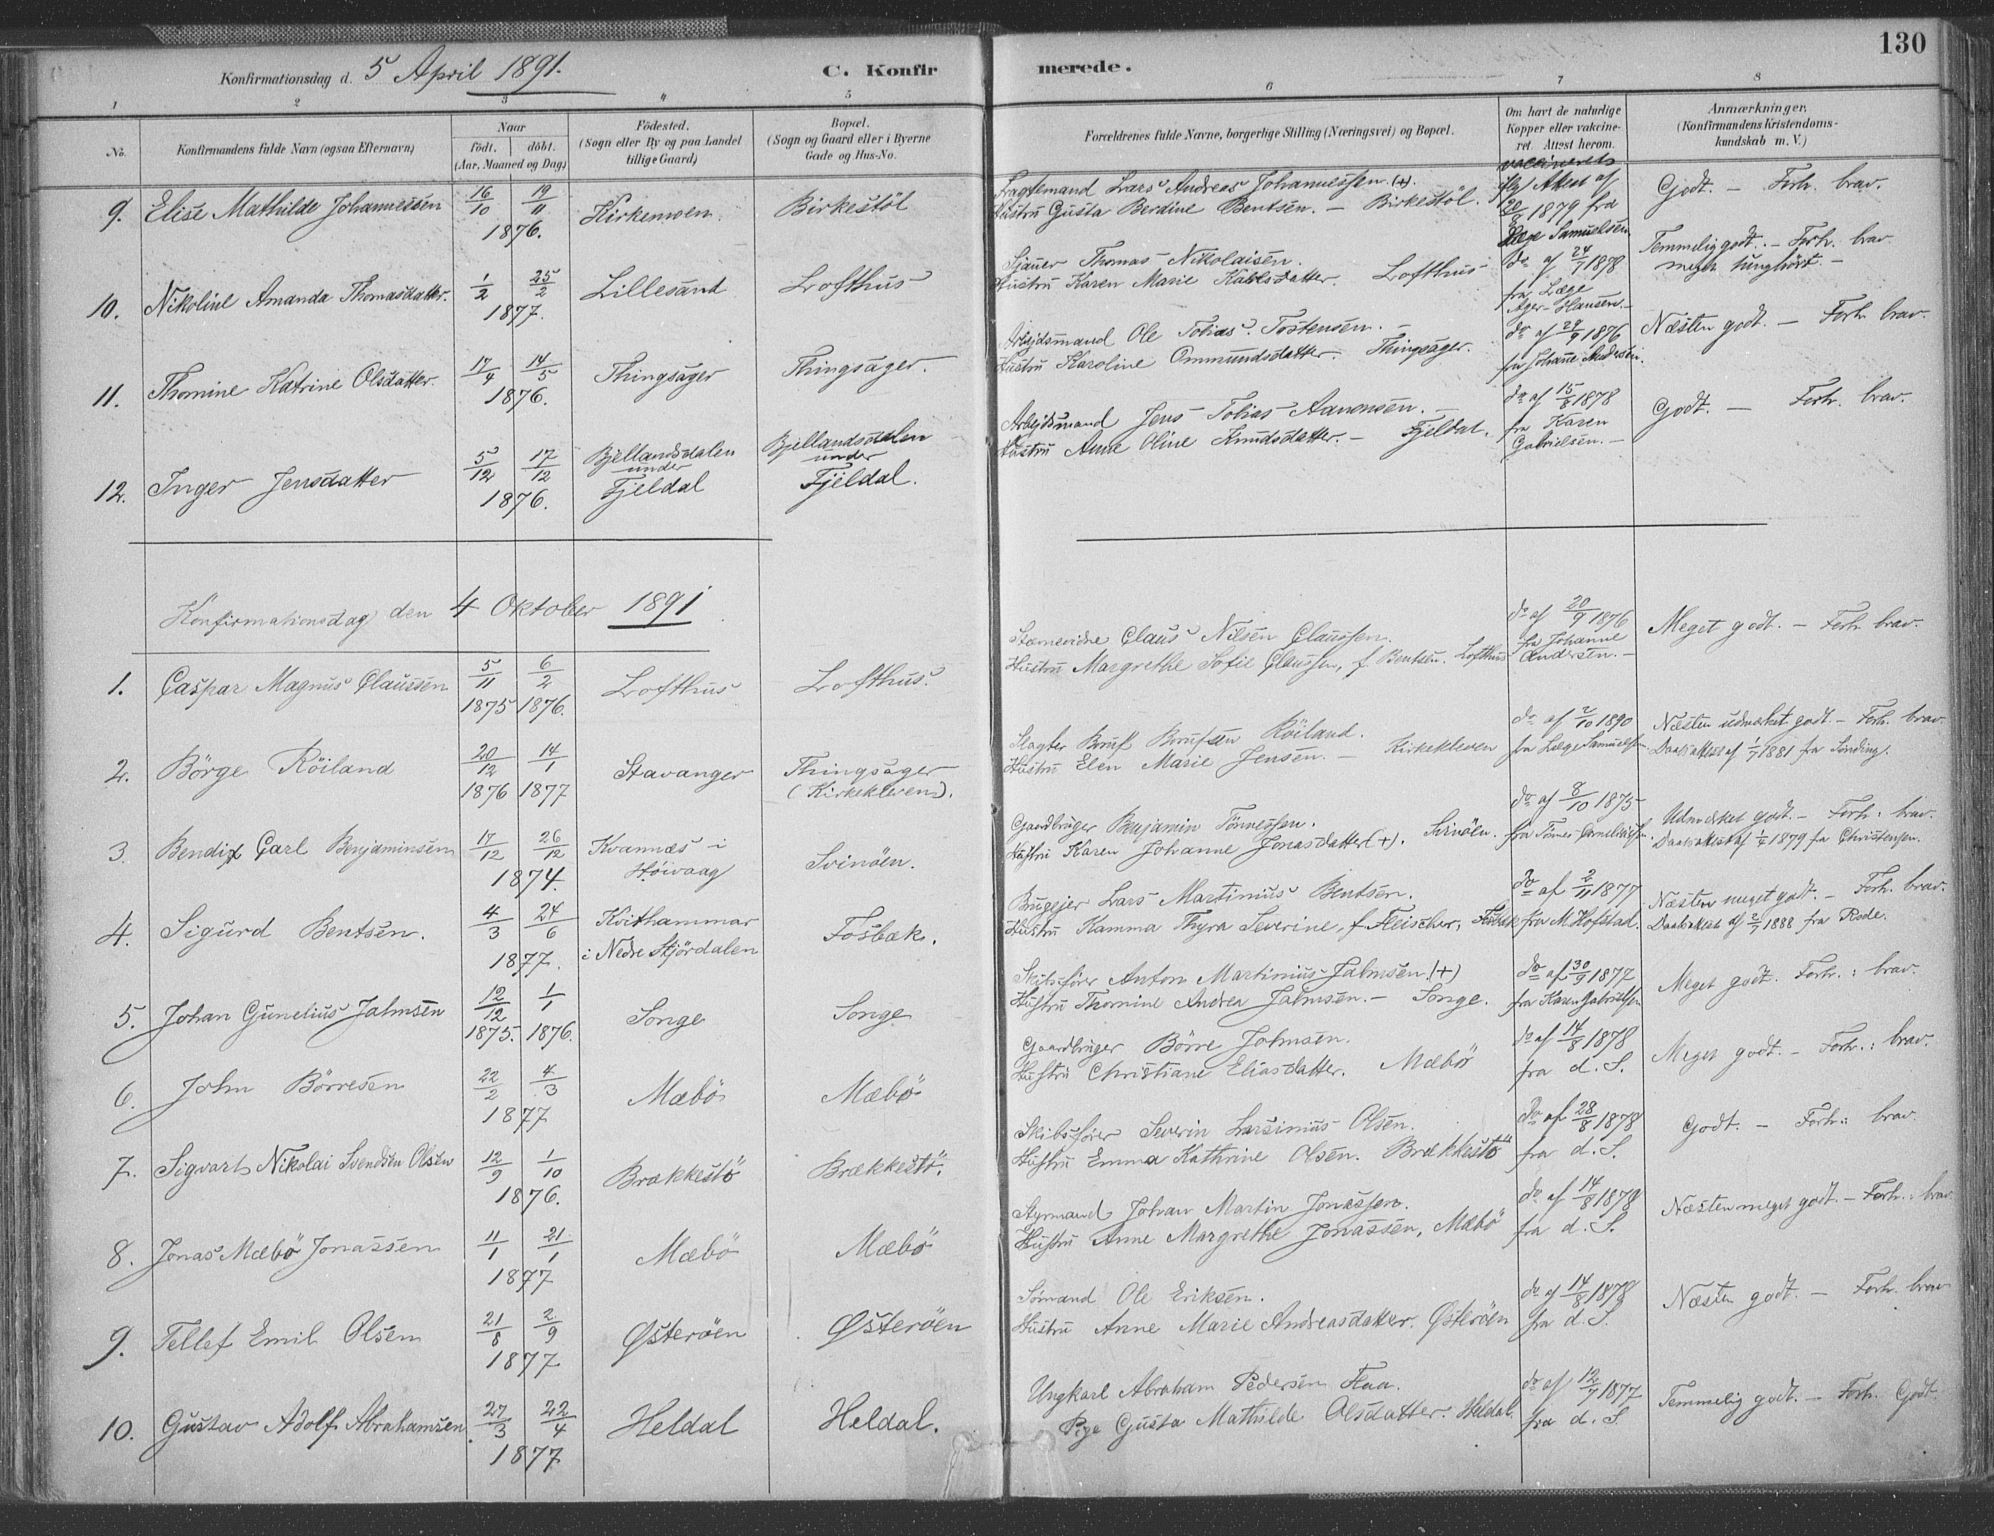 130
Konfirmationsdag d. 5 April 1891.
C. Konfirmerede.
1 2 3 4 5 6 7 8
No.
Konfirmandens fulde Navn (ogsaa Efternavn)
Naar
født. døbt.
(Aar, Maaned og Dag)
Fødested.
(Sogn eller By og paa Landet
tillige Gaard)
Bopæl.
(Sogn og Gaard eller i Byerne
Gade og Hus-No.
Forældrenes fulde Navne, borgerlige Stilling (Næringsvei) og Bopæl.
Om havt de naturlige
Kopper eller vakcine-
ret. Attest herom.
Anmærkninger.
(Konfirmandens Kristendoms-
kundskab m. V.)
9. Elise Mathilde Johannessen 16/10 19/11 1876. Kirkemoen. Birkestöl
Fragtemand Lars Andreas Johannessen. (+).
Hustru Gusta Berdine Bentsen. — Birkestöl.
vaccineret Attest af 20/8 1879 fra Læge Samuelsen
Godt. — Forh. brav.
10. Nikoline Amanda Thomasdatter. 1/2 25/2 1877. Lillesand Lofthus
Sjauer Thomas Nikolaisen.
Hustru Karen Marie Karlsdatter. Lofthus
do af 24/7 1878 fra Læge Ager-Hansen.—
Temmelig godt. — Forh. brav
meget tunghört.—
11. Thomine Katrine Olsdatter. 17/4 14/5 1876. Thingsager Thingsager.
Arbejdsmand Ole Tobias Tostensen. —
Hustru Karoline Ommundsdatter. Thingsager.
do af 29/9 1876 fra Johanne Andersen.
Næsten godt. — Forh. brav.
12. Inger Jensdatter 5/12 17/12 1876. Bjellandsdalen under Fjeldal Bjellandsdalen under Fjeldal.
Arbejdsmand Jens Tobias Aanensen. —
Hustru Anne Oline Knudsdatter. — Fjeldal.
do af 15/8 1878 fra Karen Gabrielsen. —
Godt. — Forh. brav.
Konfirmationsdag den 4 Oktober 1891
1. Caspar Magnus Claussen 5/11 1875 6/2 1876. Lofthus Lofthus.
Claus Nilsen Claussen.
Hustru Margrethe Sofie Claussen, f. Bentsen. Lofthus
do af 20/9 1876 fra Johanne Andersen.—
Meget godt. — Forh. brav.
2. Börge Röiland 20/12 1876 14/1 1877 Stavanger Thingsager (Kirkekleven).
Slagter Röiland.
Hustru Elen Marie Jensen. — Kirkekleven
do af 2/10 1890 fra Læge Samuelsen
Næsten udmærket godt — Forh. brav.
Daabsattest af 1/7 1881 fra
3. Bendix Carl Benjaminsen 17/12 26/12 1874. Kvannæs i Höivaag Svinöen.
Gaardbruger Benjamin Tönnessen.
Hustru Karen Johanne Jonasdatter (+). Svinöen.
do af 8/10 1875 fra Tönnes Corneliussen.
Udmærket godt. — Forh.: brav.
Daabsattest af 1/4 1879 fra Christensen.
4. Sigurd Bentsen. 4/3 24/6 1877. Kvithammar i Nedre Stjördalen Fosbæk.
Brugejer Lars Martinius Bentsen.
Hustru Hamma Thyra Severine, f. Fleischer, Fosbæk
do af 2/11 1877 fra M. Hofstad.
Næsten meget godt. — Forh. brav.
Daabsattest af 2/7 1888 fra Rode.
5. Johan Gunelius Jahnsen 12/12 1875. 1/1 1876. Songe Songe
Skibsfører Anton Martinius Jahnsen. (+)
Hustru Thomine Andrea Jahnsen. — Songe.
do af 30/9 1877 fra Karen Gabrielsen
Meget godt. Forh.: brav.
6. John Börresen 22/2 4/3 1877 Mæbö Mæbö
Gaardbruger Börre Johnsen.
Hustru Christiane Eliasdatter. Mæbö
do af 14/8 1878 fra d. S.
Meget godt. — Forh.: brav.
7. Sigvart Nikolai Svendsen Olsen 12/9 1/10 1876. Brækkestö Brækkestö.
Skibsfører Severin Larsinius Olsen.
Hustru Emma Kathrine Olsen. Brækkestö
do af 28/8 1878 fra d. S.
Godt. — Forh.: brav.
8. Jonas Mæbö Jonassen 11/1 21/1 1877 Mæbö Mæbö
Styrmand Johan Martin Jonassen.
Hustru Anne Margrethe Jonassen, Mæbö
do af 14/8 1878 fra d. S.
Næsten meget godt. — Forh.: brav
9. Tellef Emil Olsen 21/8 2/9 1877 Østeröen Østeröen
Sømand Ole Eriksen.
Hustru Anne Marie Andreasdatter. Østeröen
do af 14/8 1878 fra d. S.
Næsten godt. — Forh. brav
10. Gustav Adolf Abrahamsen 27/3 22/4 1877 Heldal Heldal.
Ungkarl Abraham Pedersen Flaa.
Pge Gusta Mathilde Olsdatter. Heldal.
do af 12/7 1877 fra d. S.
Temmelig godt. — Forh. Godt.